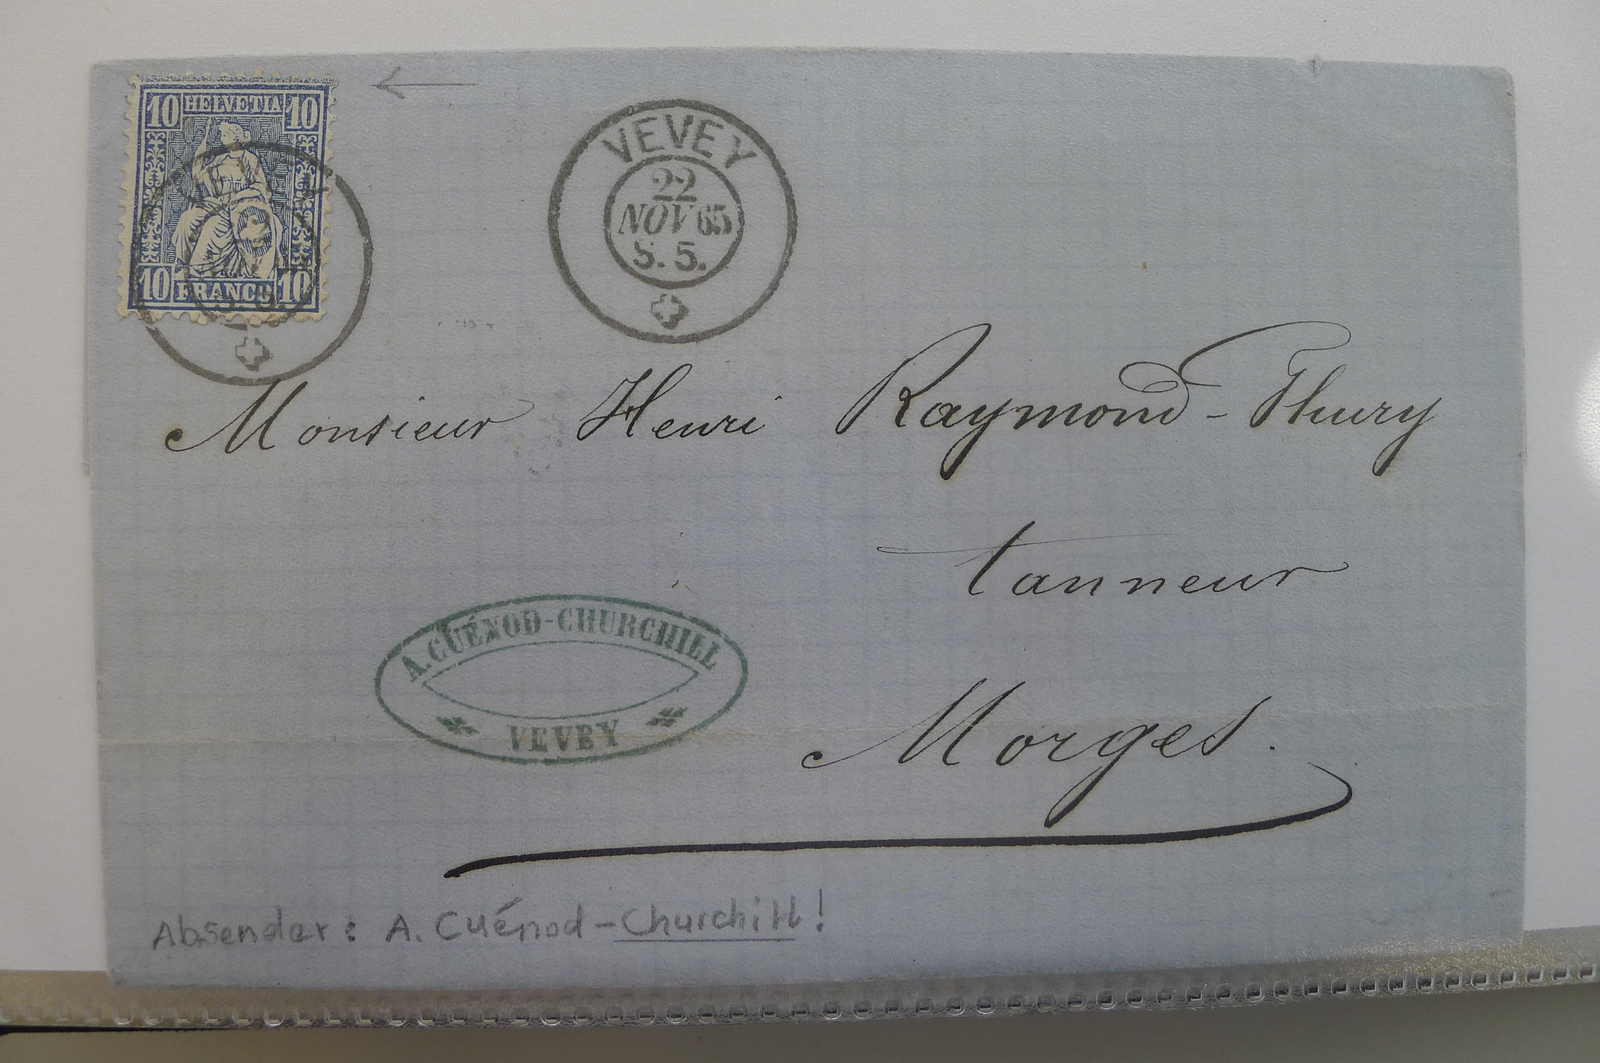 10 HELVETIA 10
10 FRANCO 10
VEVEY
22
NOV 65
S. 5.
Monsieur Henri Raymond-Thury
tanneur
A. CUÉNOD-CHURCHILL
VEVEY
Morges.
Absender: A. Cuénod-Churchill!